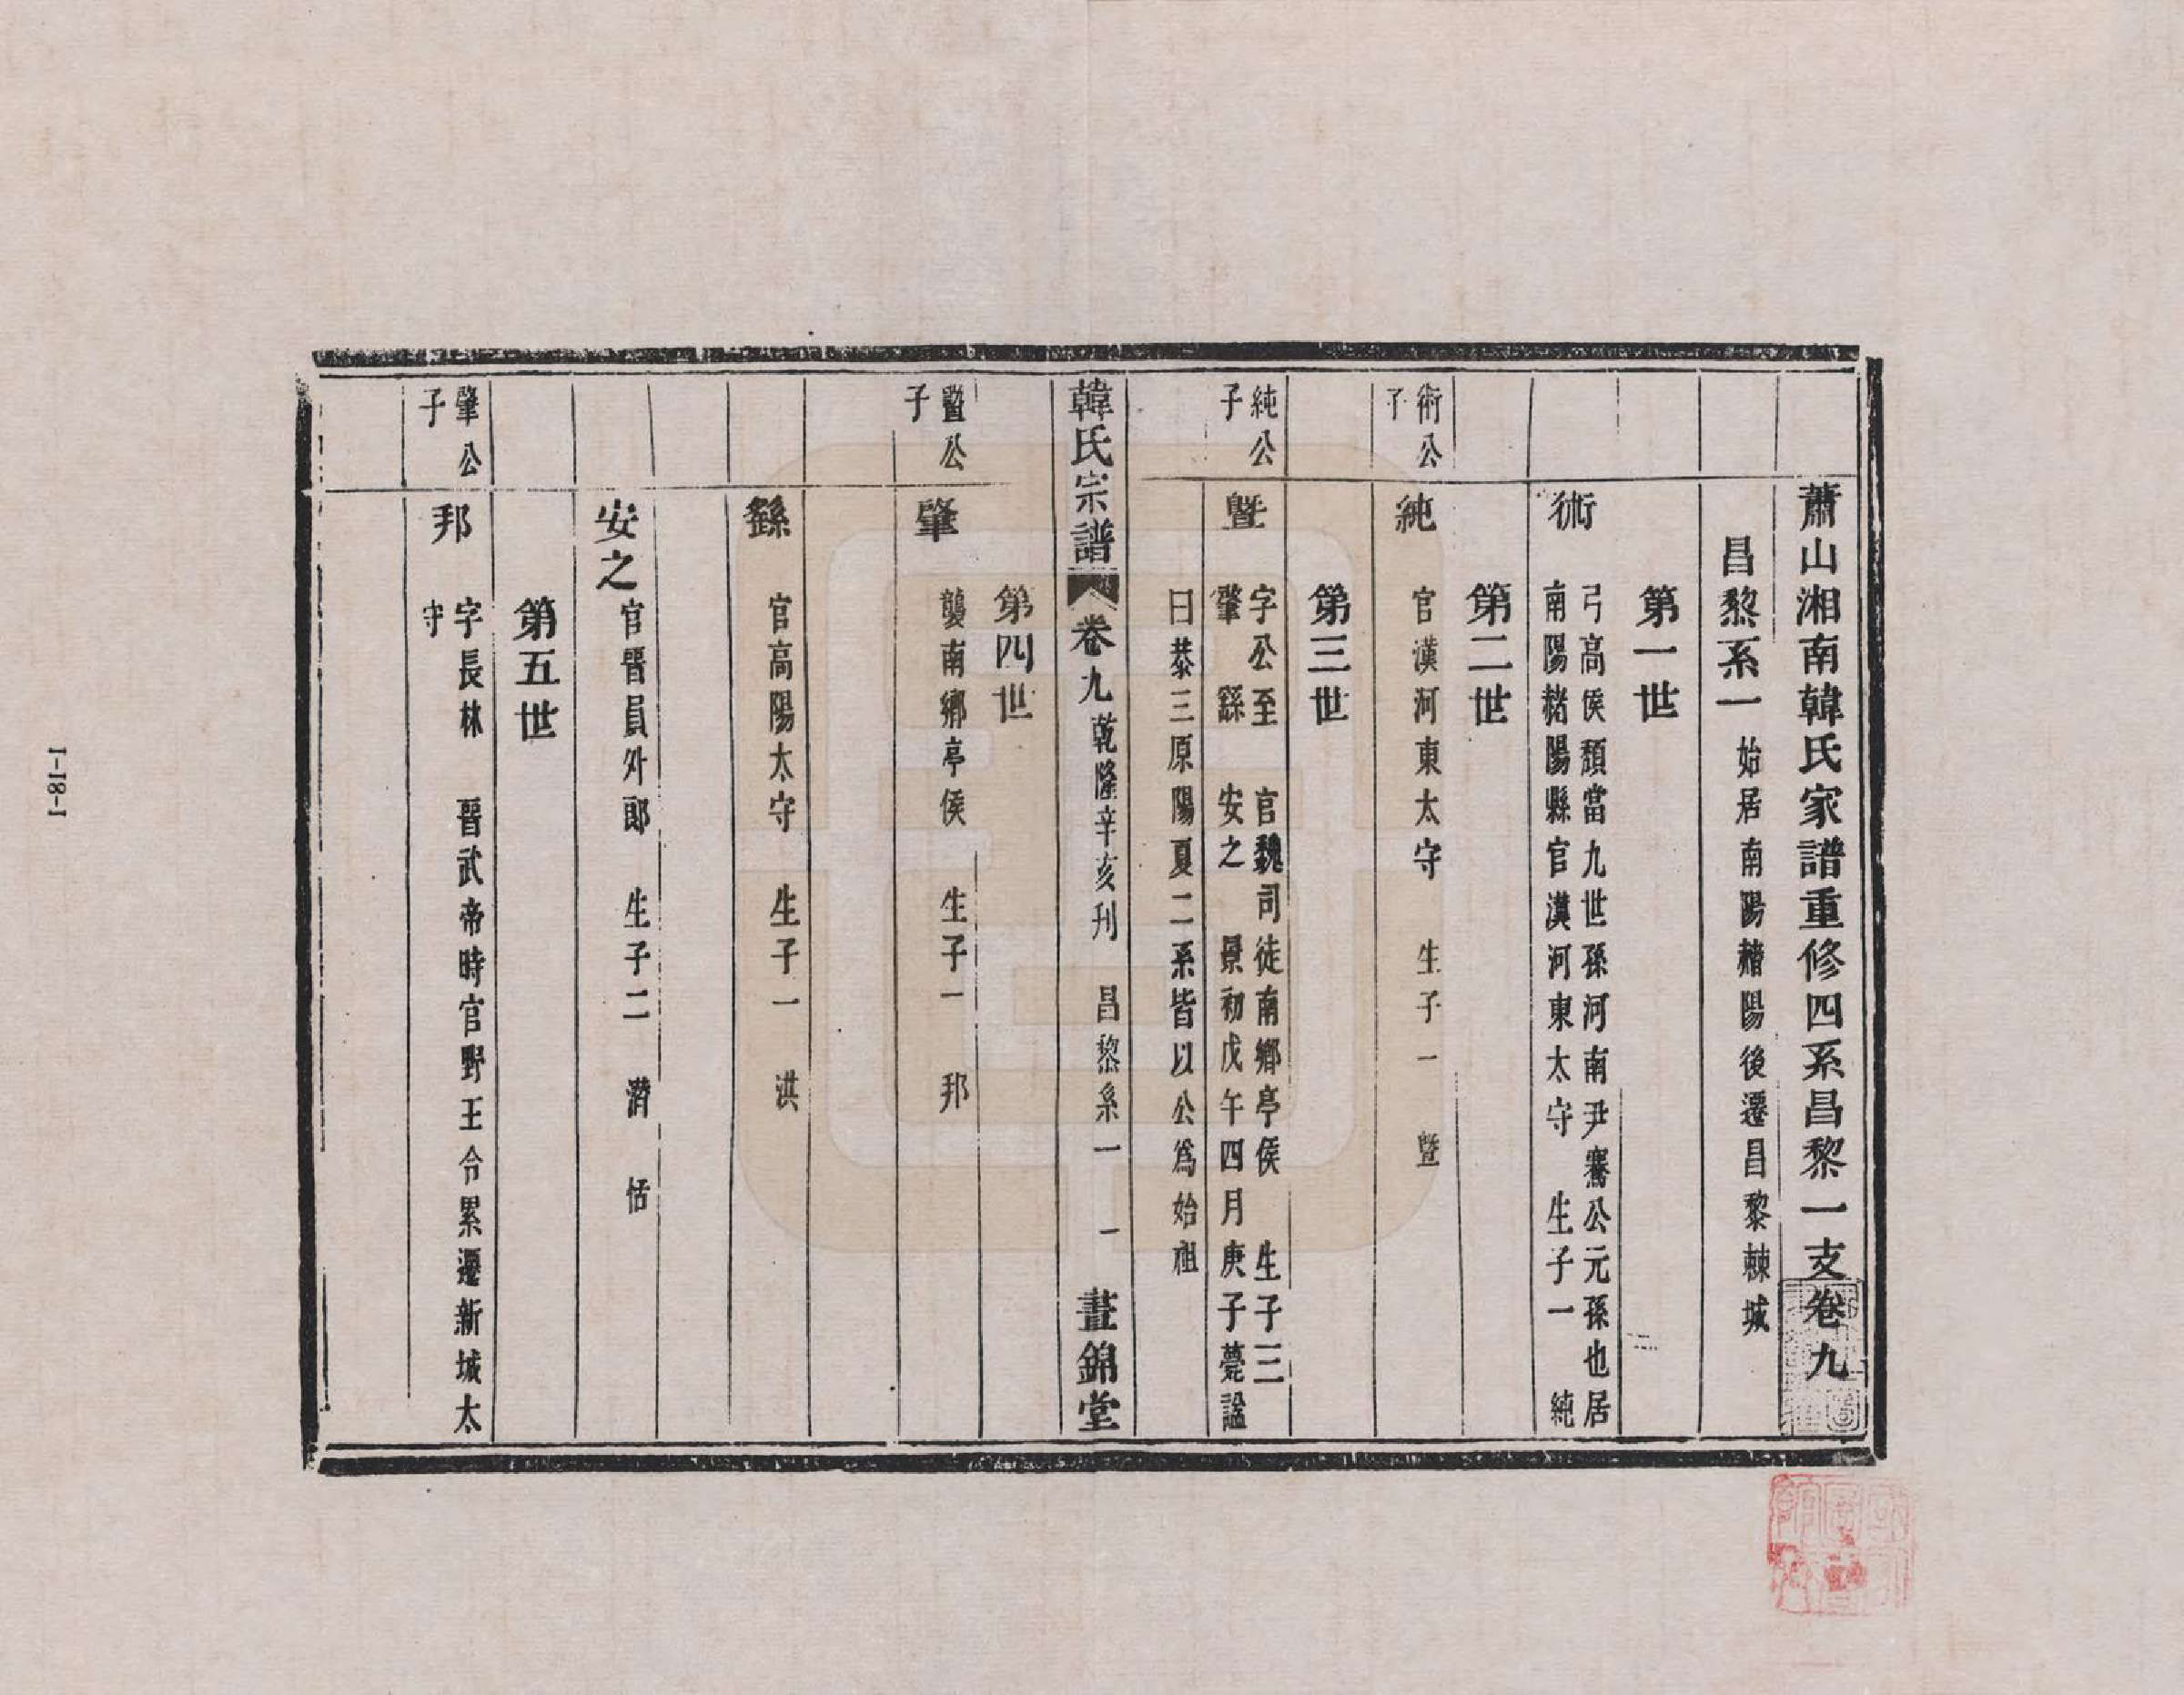 蕭山湘南韓氏家譜重修四系昌黎一支卷九
昌黎系一 始居南陽赭陽後遷昌黎棘城
第一世
術 弓高侯頹當九世孫河南尹騫公元孫也居
南陽赭陽縣官漢河東太守 生子一 純
第二世
術公
子
純 官漢河東太守 生子一 暨
第三世
純公
子
暨 字公至 官魏司徒南鄉亭侯 生子三
肇 繇 安之 景初戊午四月庚子薨諡
曰恭三原陽夏二系皆以公爲始祖
韓氏宗譜 卷九 乾隆辛亥刊 昌黎系一 一 晝錦堂
第四世
暨公
子
肇 襲南鄉亭侯 生子一 邦
繇 官高陽太守 生子一 洪
安之 官晉員外郎 生子二 潛 恬
第五世
肇公
子
邦 字長林 晉武帝時官野王令累遷新城太
守
1-18-1